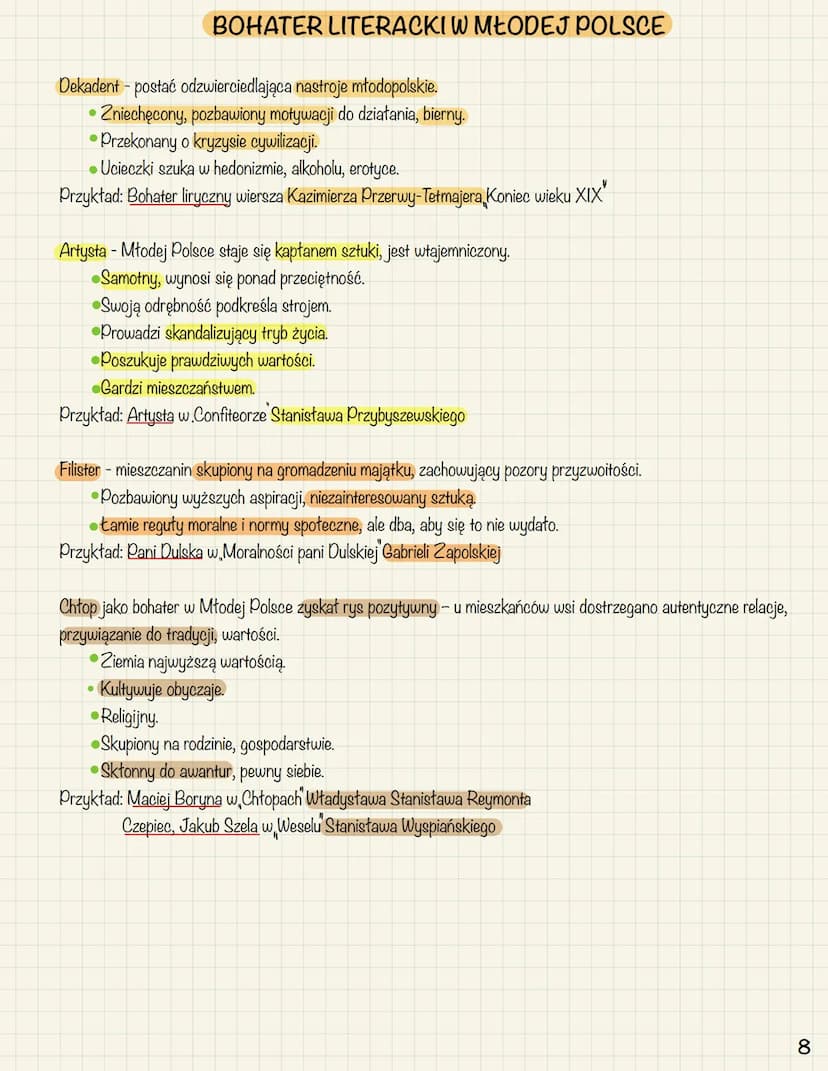 BOHATER LITERACKI W MŁODEJ POLSCE
Dekadent - postać odzwierciedlająca nastroje młodopolskie.
• Zniechęcony, pozbawiony motywacji do działania, bierny.
• Przekonany o kryzysie cywilizacji.
• Ucieczki szuka w hedonizmie, alkoholu, erotyce.
Przykład: Bohater liryczny wiersza Kazimierza Przerwy-Tetmajera „Koniec wieku XIX"
Artysta - Młodej Polsce staje się kapłanem sztuki, jest wtajemniczony.
• Samotny, wynosi się ponad przeciętność.
• Swoją odrębność podkreśla strojem.
• Prowadzi skandalizujący tryb życia.
• Poszukuje prawdziwych wartości.
• Gardzi mieszczaństwem.
Przykład: Artysta w „Confiteorze" Stanisława Przybyszewskiego
Filister - mieszczanin skupiony na gromadzeniu majątku, zachowujący pozory przyzwoitości.
• Pozbawiony wyższych aspiracji, niezainteresowany sztuką.
• Łamie reguły moralne i normy społeczne, ale dba, aby się to nie wydało.
Przykład: Pani Dulska w „Moralności pani Dulskiej" Gabrieli Zapolskiej
Chłop jako bohater w Młodej Polsce zyskał rys pozytywny – u mieszkańców wsi dostrzegano autentyczne relacje,
przywiązanie do tradycji, wartości.
• Ziemia najwyższą wartością.
• Kultywuje obyczaje.
• Religijny.
• Skupiony na rodzinie, gospodarstwie.
• Skłonny do awantur, pewny siebie.
Przykład: Maciej Boryna w „Chłopach" Władysława Stanisława Reymonta
Czepiec, Jakub Szela w „Weselu" Stanisława Wyspiańskiego
8